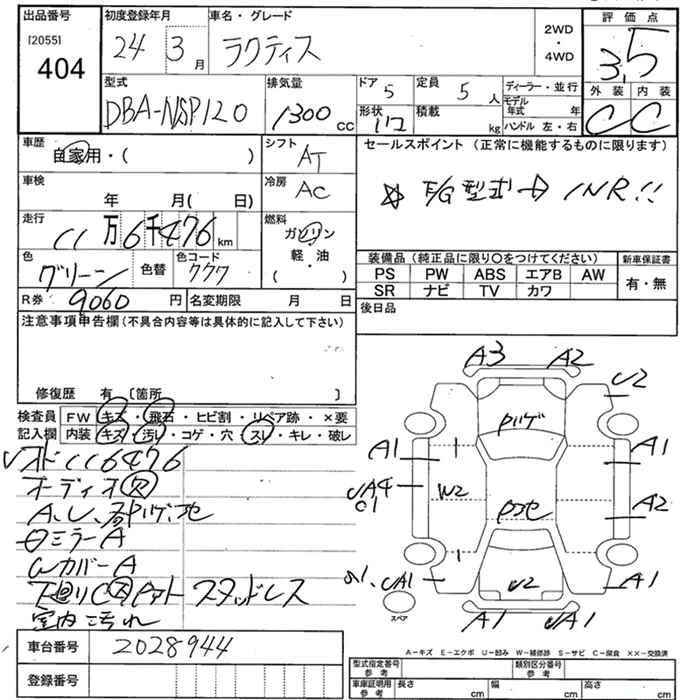 出品番号
[2055]
404
初度登録年月
24 3 月
車名・グレード
ラクティス
2WD
・
4WD
評価点
3.5
外装 内装
C C
型式
DBA-NSP120
排気量
1300 CC
ドア
5
形状
定員
5 人
積載
kg
ディーラー・並行
モデル年式 年
ハンドル 左・右
車歴
自家用・( )
シフト
AT
セールスポイント(正常に機能するものに限ります)
☆ E/G型式→1NR!!
車検
年 月( 日)
冷房
AC
走行
11万6千476 km
燃料
ガソリン
軽・油
( ・ )
色
グリーン
色替
色コード
777
装備品(純正品に限り○をつけてください)
PS PW ABS エアB AW
SR ナビ TV カワ
新車保証書
有・無
R券 9060 円
名変期限 月 日
後日品
注意事項申告欄(不具合内容等は具体的に記入して下さい)
修復歴 有 [箇所 ]
検査員
記入欄
FW キズ・飛石・ヒビ割・リペア跡・×要
内装 キズ・汚レ・コゲ・穴・スレ・キレ・破レ
116476
オーディオ欠
ミラーA
WカバーA
スタッドレス
室内汚れ
A3 A2
U2
A1 A1
W2
A2
A1
U2
A1
スペア
車台番号 2028944
登録番号
A-キズ E-エクボ U-凹み W-補修跡 S-サビ C-腐食 ××-交換済
型式指定番号
参考
類別区分番号
参考
車庫証明用
参考
長さ cm
幅 cm
高さ cm